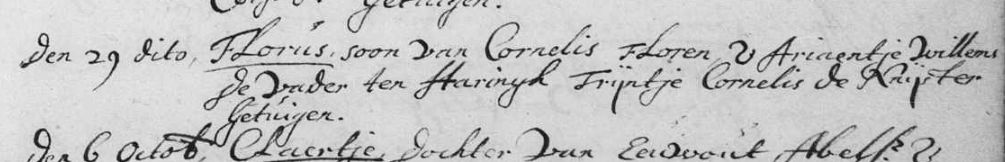 Getuijgen.
Den 29 dito, Florus, soon van Cornelis Floren & Ariaentje Willems
de vader ten Haringh Trijntje Cornelis de Knijster
Getuijgen.
Den 6 Octob, Claertje, dochter van Eewout Abelss: &